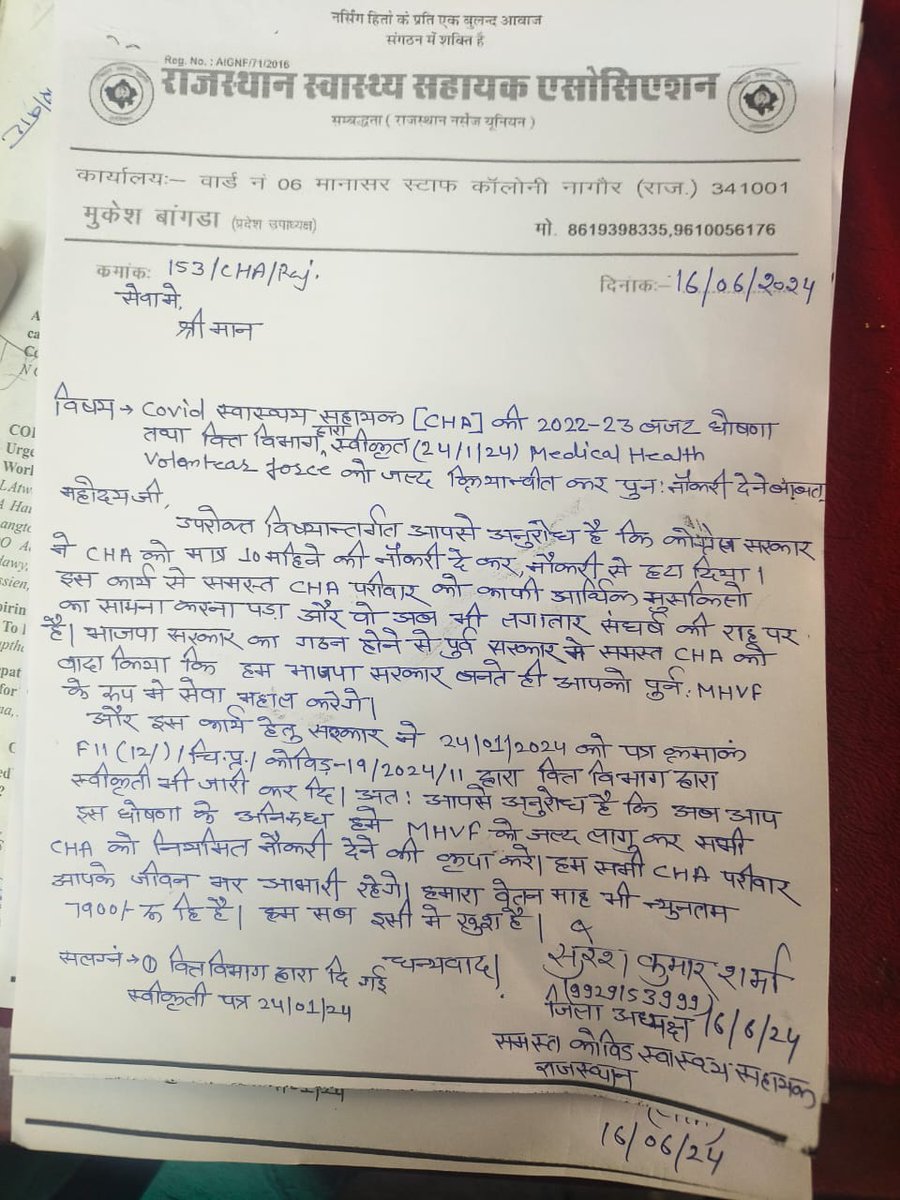 नर्सिंग हितों के प्रति एक बुलन्द आवाज
संगठन में शक्ति है
Reg. No. : AIGNF/71/2016
राजस्थान स्वास्थ्य सहायक एसोसिएशन
सम्बद्धता ( राजस्थान नर्सेज यूनियन )
कार्यालयः– वार्ड नं 06 मानासर स्टाफ कॉलोनी नागौर (राज.) 341001
मुकेश बांगडा (प्रदेश उपाध्यक्ष) मो. 8619398335,9610056176
कमांकः 153/CHA/Raj. दिनांकः- 16/06/2024
सेवामे,
श्री मान
विषय → Covid स्वास्थ्य सहायक [CHA] की 2022-23 बजट घोषणा
तथा वित्त विभाग द्वारा स्वीकृत (24/1/24) Medical Health
Volantear force को जल्द क्रियान्वीत कर पुन: नौकरी देने बाबत
महोदय जी,
उपरोक्त विषयान्तर्गत आपसे अनुरोध है कि सरकार
ने CHA को मात्र 10 महिने की नौकरी दे कर, नौकरी से हटा दिया।
इस कार्य से समस्त CHA परीवार को काफी आर्थिक मुसकिलो
का सामना करना पड़ा और वो अब भी लगातार संघर्ष की राह पर
है। भाजपा सरकार का गठन होने से पुर्व सरकार मे समस्त CHA को
वादा किया कि हम भाजपा सरकार बनते ही आपको पुर्न: MHVF
के रूप मे सेवा बहाल करेगे।
और इस कार्य हेतु सरकार ने 24/01/2024 को पत्र क्रमाकं
F11(12/)/चि.प्र./कोविड़-19/2024/11 द्वारा वित्त विभाग द्वारा
स्वीकृती भी जारी कर दि। अत: आपसे अनुरोध है कि अब आप
इस घोषणा के हमे MHVF को जल्द लागु कर सभी
CHA को नियमित नौकरी देने की कृपा करे। हम सभी CHA परीवार
आपके जीवन भर आभारी रहेगे। हमारा वेतन माह भी न्युनतम
7900/- रू हि है। हम सब इसी मे खुश है।
धन्यवाद।
सलग्नं → ① वित्त विभाग द्वारा दि गई
स्वीकृती पत्र 24/01/24
सुरेश कुमार शर्मा
(9929153999)
जिला अध्यक्ष 16/6/24
समस्त कोविड स्वास्थ्य सहायक
राजस्थान
16/06/24